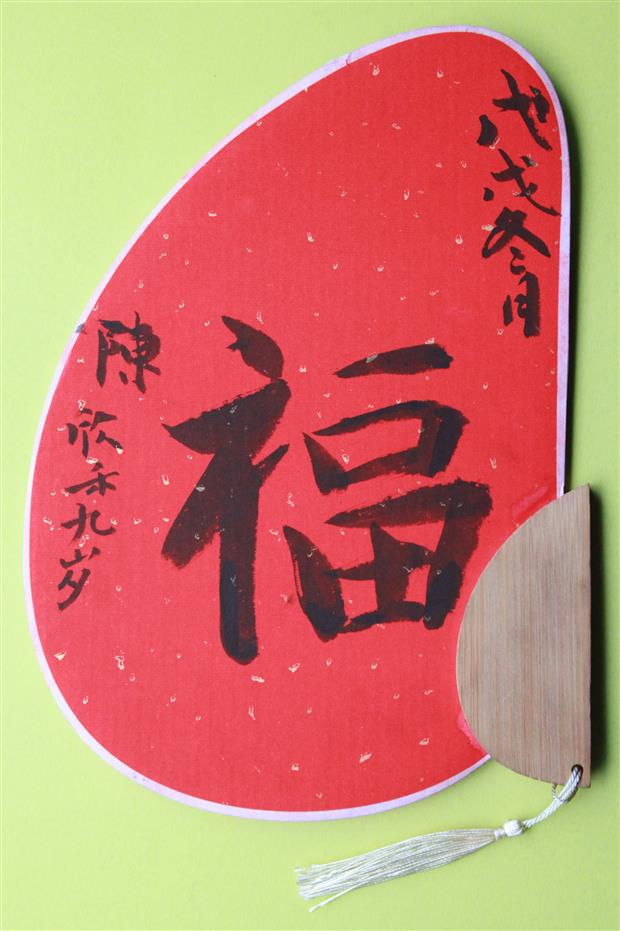 戊戌冬月
福
陳欣禾九岁